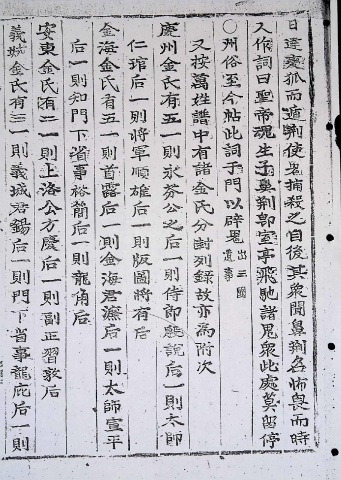 日達變狐而遁荆使鬼捕殺之自後其衆聞鼻荆名怖畏而時
人作詞曰聖帝魂生子鼻荆郎室亭飛馳諸鬼衆此處莫留停
○州俗至今帖此詞于門以辟鬼 出三國遺事
又按萬姓譜中有諸金氏分封列錄故亦爲附次
慶州金氏有五一則永芬公之后一則侍郎殷說后一則太師
仁琯后一則將軍順雄后一則版圖將有后
金海金氏有五一則首露后一則金海君濂后一則太師宣平
后一則知門下省事裕簡后一則龍角后
安東金氏有二一則上洛公方慶后一則副正習敦后
義城金氏有三一則義城君錫后一則門下省事龍庇后一則